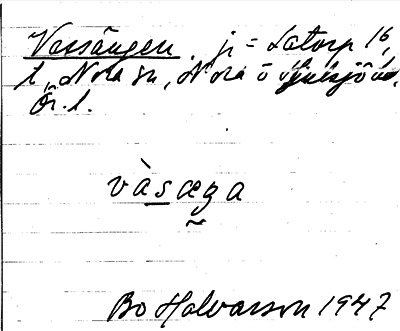 Vassängen, jr = Latorp 16,
t, Nora sn, Nora o Hjulsjö
Ör. l.
vàsæŋa
Bo Halvarson 1947